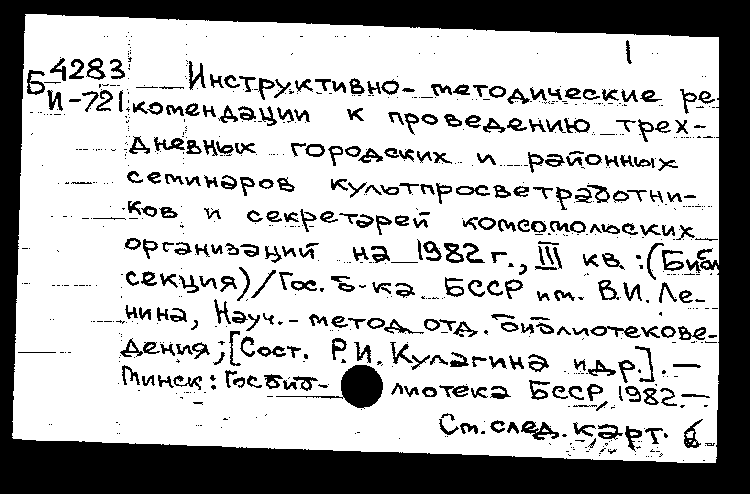 1
Б 4283
И-721
Инструктивно-методические ре
комендации к проведению трех-
дневных городских и районных
семинаров культпросветработни-
ков и секретарей комсомольских
организаций на 1982 г., III кв. : (Библ
секция) / Гос. б-ка БССР им. В.И. Ле-
нина, Науч.-метод. отд. библиотекове-
дения; [Сост. Р.И. Кулагина и др.]. —
Минск : Госбиб- лиотека БССР, 1982. —
См. след. карт.